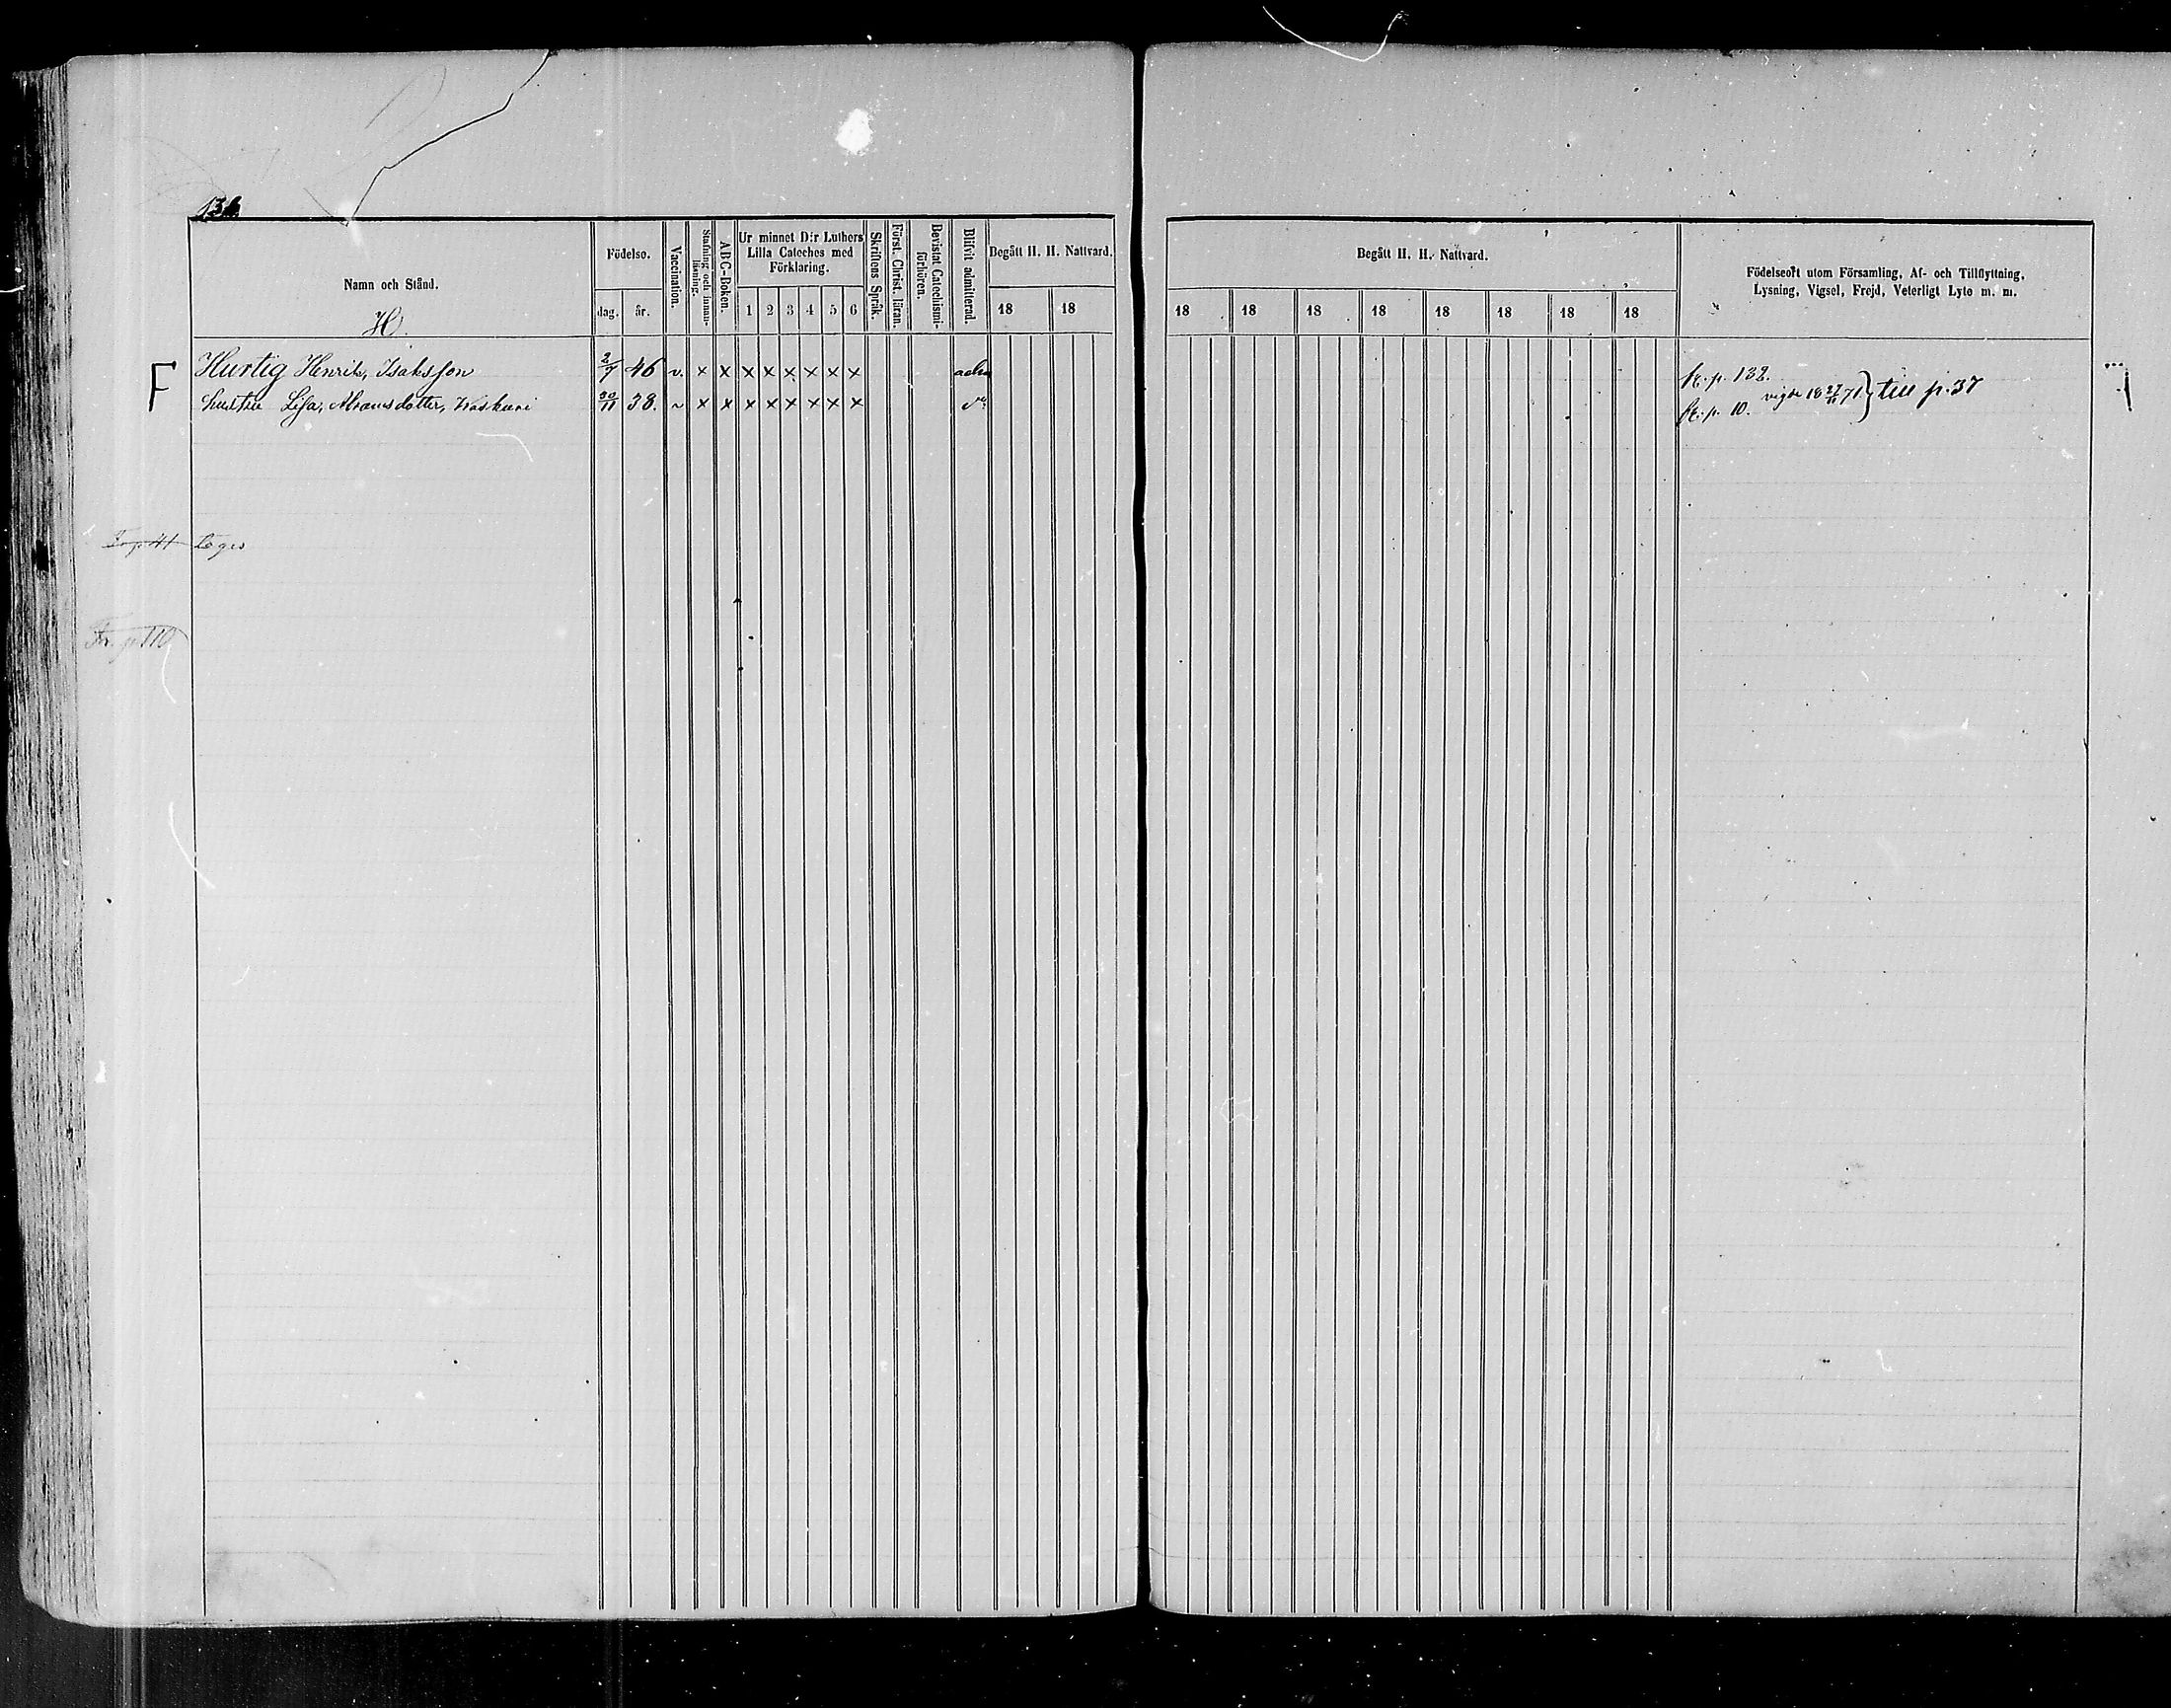 136
Namn och Stånd.
H.
Födelse.
dag.
år.
Vaccination.
Stafning och innan-läsning.
ABC-Boken.
Ur minnet D:r Luthers
Lilla Cateches med
Förklaring.
1 2 3 4 5 6
Skriftens Språk.
Först. Christ. läran.
Bevistat Catechismi-förhören.
Blifvit admitterad.
Begått H. H. Nattvard.
18 18
Begått H. H. Nattvard.
18 18 18 18 18 18 18 18
Födelseort utom Församling, Af- och Tillflyttning,
Lysning, Vigsel, Frejd, Veterligt Lyte m. m.
F Hurtig Henrik, Isaksson 2/7 46 v. × × × × × × × × adm fr. p. 132.
hustru Lisa, 30/11 38. v × × × × × × × × do fr. p. 10. vigde 18 27/11 71 } till p. 37
Fr. p. 110